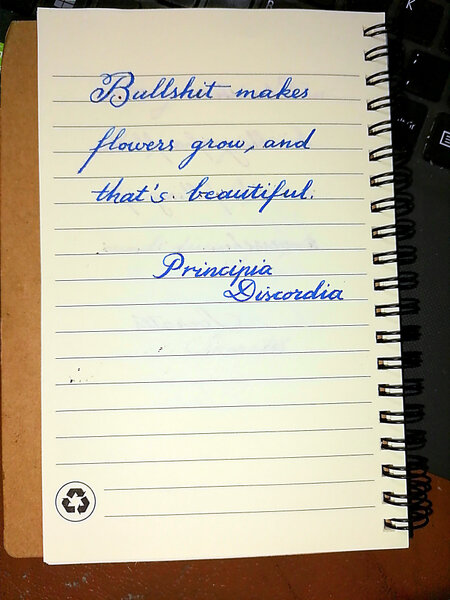 Bullshit makes
flowers grow, and
that's beautiful.
Principia
Discordia
K